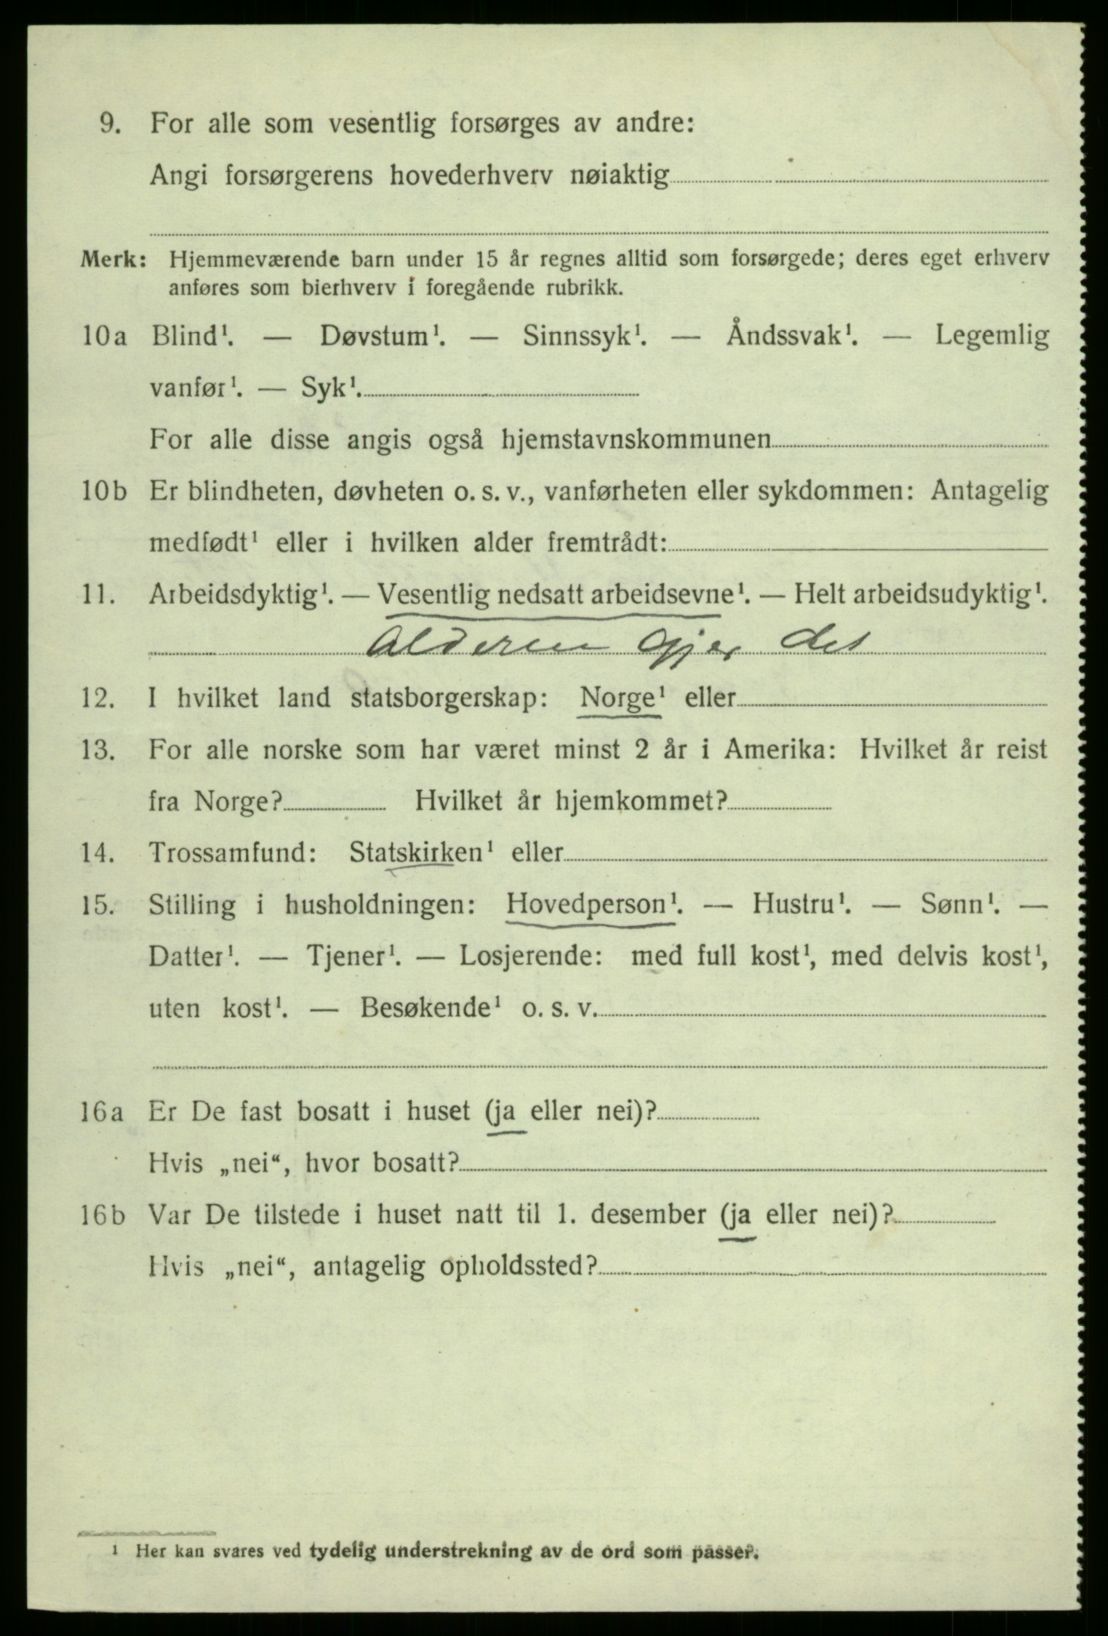 9. For alle som vesentlig forsørges av andre:
Angi forsørgerens hovederhverv nøiaktig
Merk: Hjemmeværende barn under 15 år regnes alltid som forsørgede; deres eget erhverv
anføres som bierhverv i foregående rubrikk.
10a Blind¹. — Døvstum¹. — Sinnssyk¹. — Åndssvak¹. — Legemlig
vanfør¹. — Syk¹.
For alle disse angis også hjemstavnskommunen
10b Er blindheten, døvheten o. s. v., vanførheten eller sykdommen: Antagelig
medfødt¹ eller i hvilken alder fremtrådt:
11. Arbeidsdyktig¹. — Vesentlig nedsatt arbeidsevne¹. — Helt arbeidsudyktig¹.
Alderen gjer det
12. I hvilket land statsborgerskap: Norge¹ eller
13. For alle norske som har været minst 2 år i Amerika: Hvilket år reist
fra Norge? Hvilket år hjemkommet?
14. Trossamfund: Statskirken¹ eller
15. Stilling i husholdningen: Hovedperson¹. — Hustru¹. — Sønn¹. —
Datter¹. — Tjener¹. — Losjerende: med full kost¹, med delvis kost¹,
uten kost¹. — Besøkende¹ o. s. v.
16a Er De fast bosatt i huset (ja eller nei)?
Hvis „nei“, hvor bosatt?
16b Var De tilstede i huset natt til 1. desember (ja eller nei)?
Hvis „nei“, antagelig opholdssted?
¹ Her kan svares ved tydelig understrekning av de ord som passer.